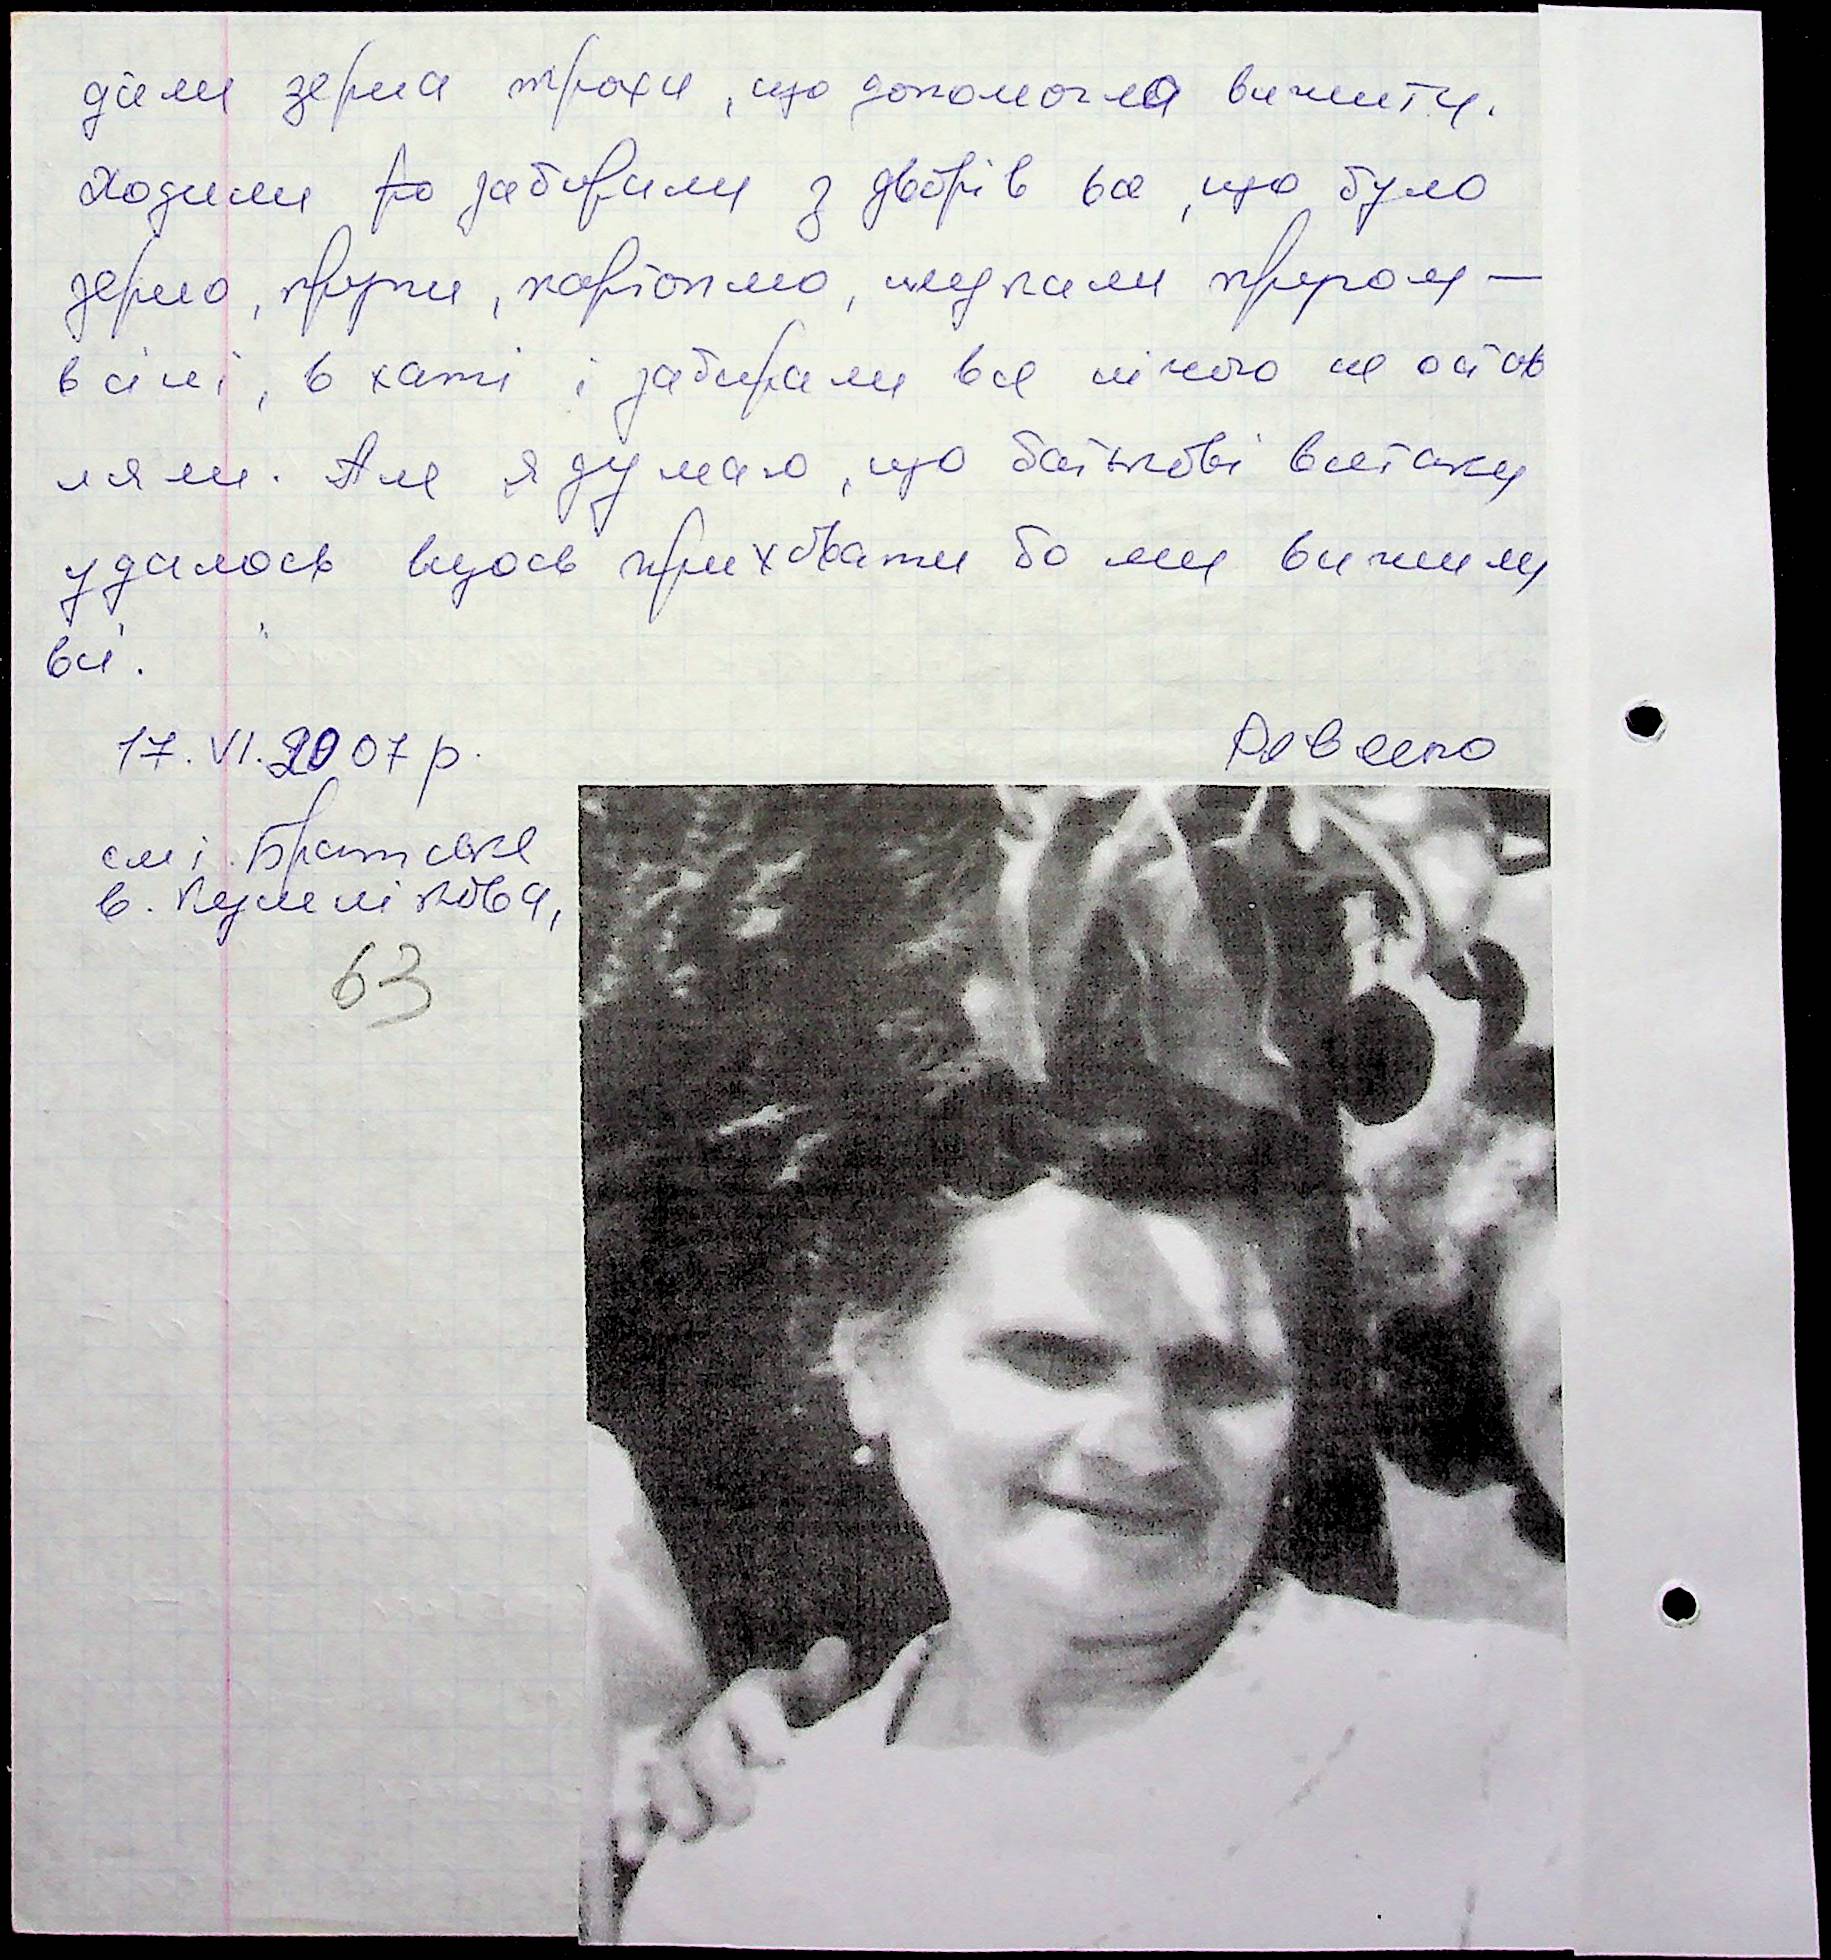 дали зерна трохи, що допомогло вижити.
Ходили забирали з дворів все, що було
зерно, крупи, картоплю, шукали кругом —
в сіні, в хаті і забирали все нічого не остав
ляли. Але я думаю, що батькові всетаки
удалось щось приховати бо ми вижили
всі.
17.VI.2007 р.
смт. Братське
в.
63